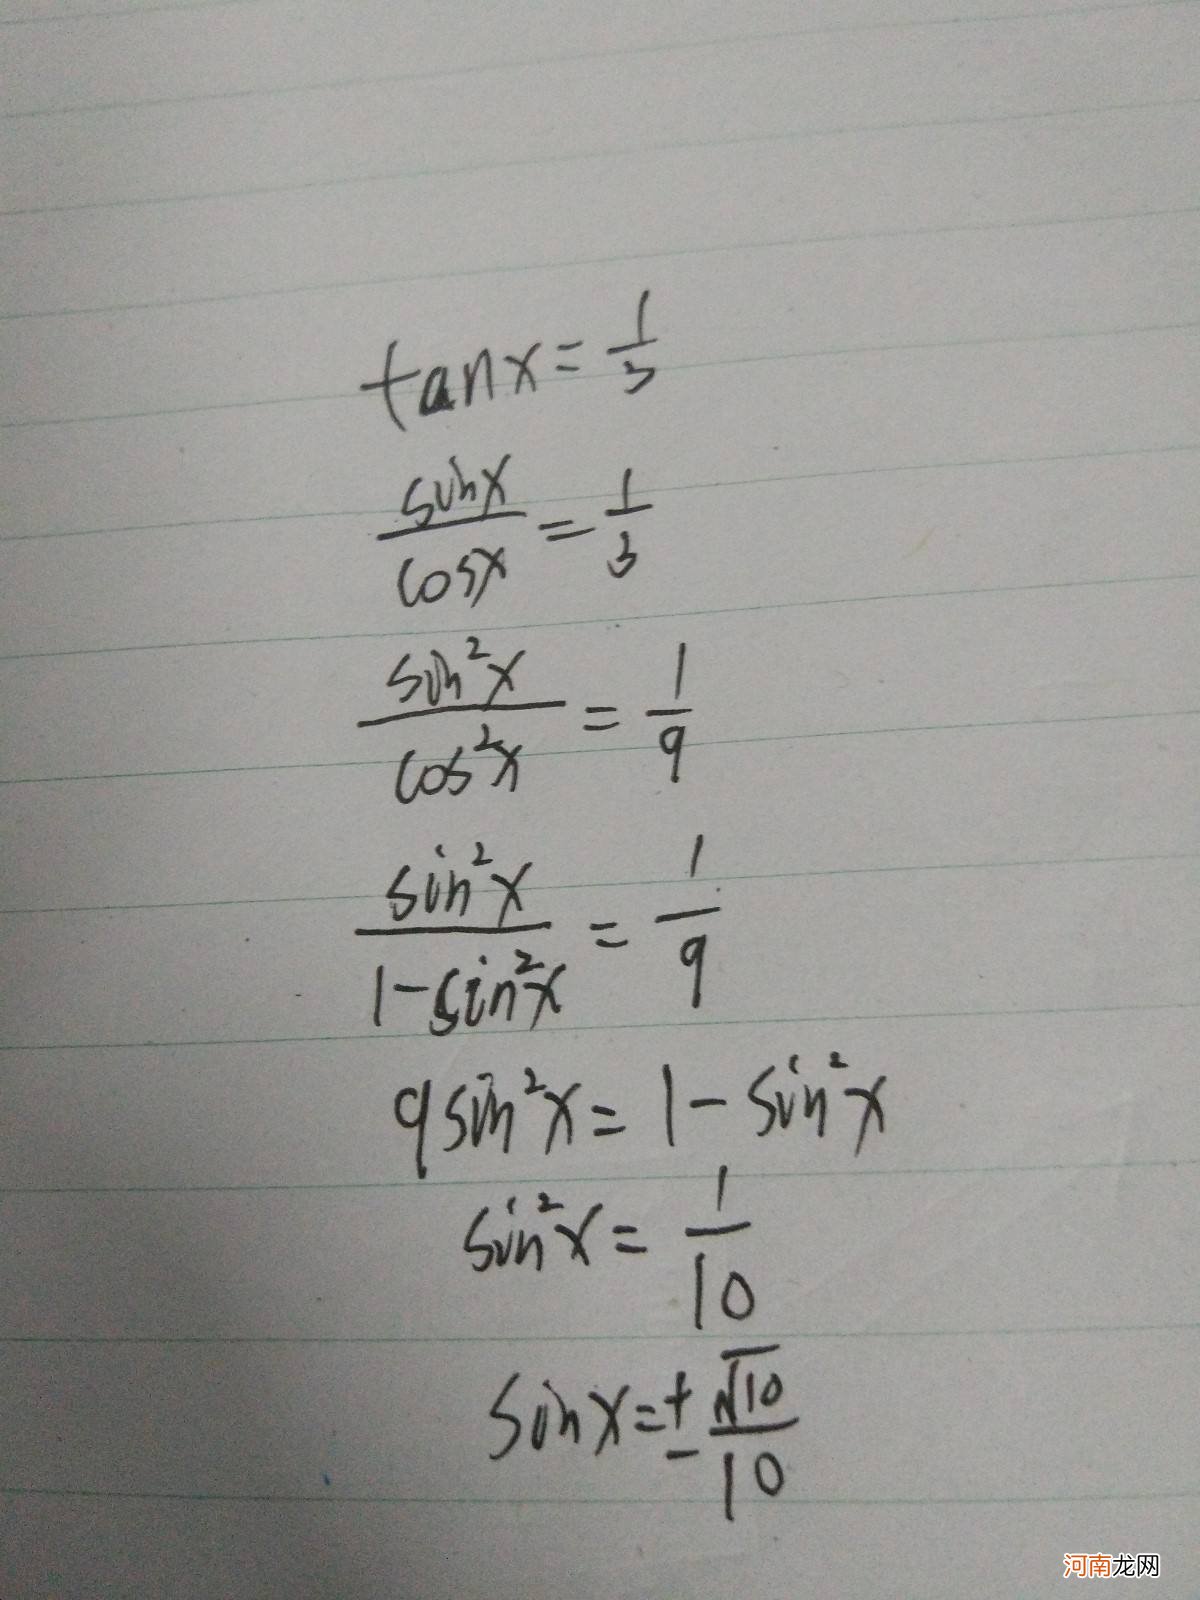 tanx=1/3
sinx/cosx=1/3
sin²x/cos²x=1/9
sin²x/1-sin²x=1/9
9sin²x=1-sin²x
sin²x=1/10
sinx=±√10/10
河南龙网